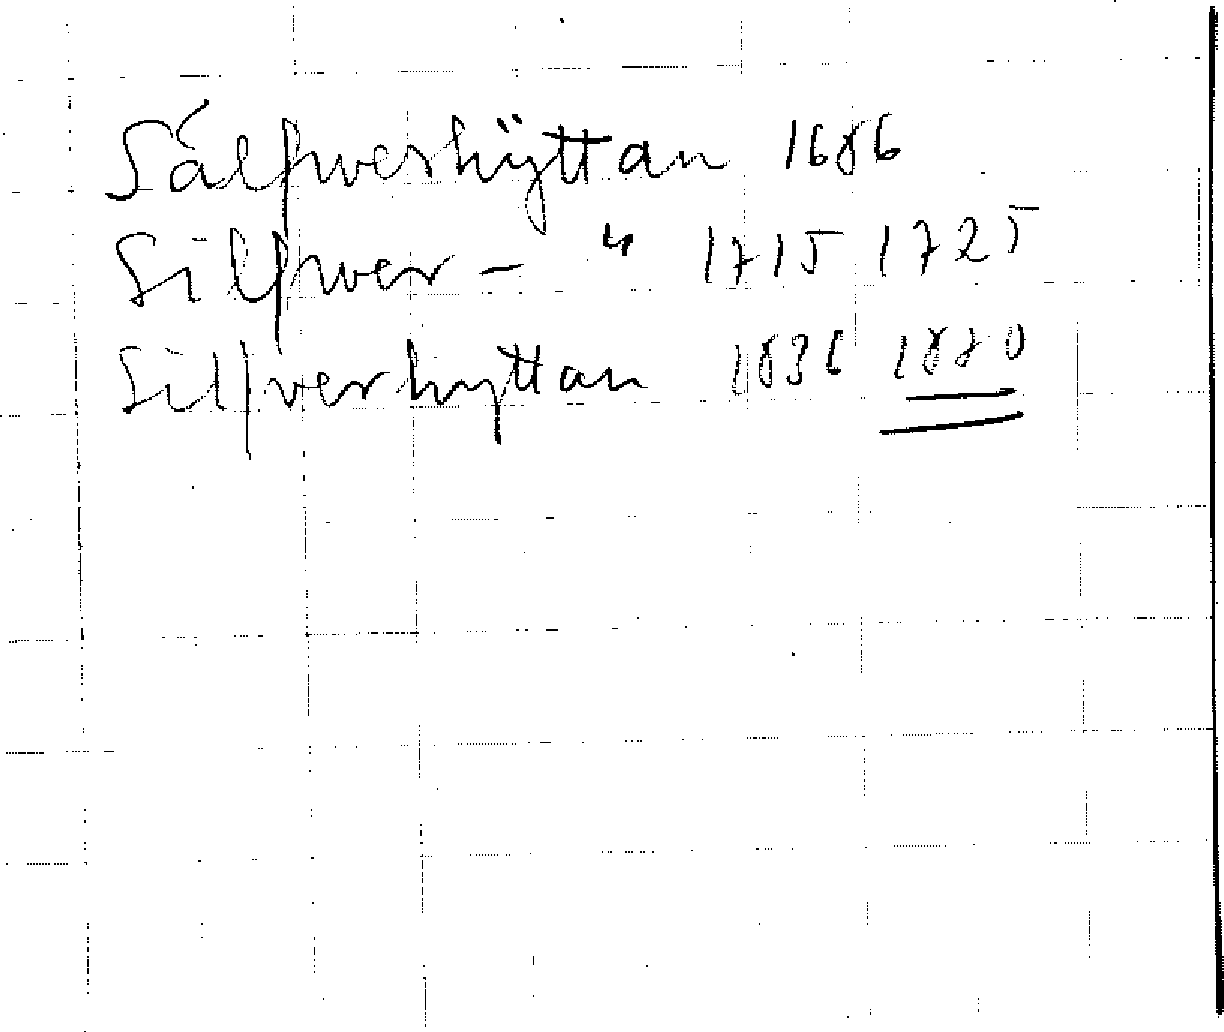 Sálfwerhÿttan 1686
Silfwer - " 1715 1725
Silfverhyttan 1836 1880